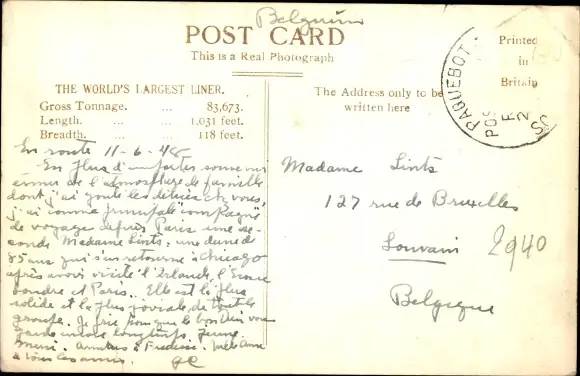 Belgium
POST CARD
This is a Real Photograph
THE WORLD'S LARGEST LINER.
Gross Tonnage. ... ... 83,673.
Length. ... ... 1,031 feet.
Breadth. ... ... 118 feet.
The Address only to be
written here
Printed
in
Britain
PAQUEBOT
POS
En route 11-6-48
En plus d'
de l'atmosphère de famille
dont j'ai goûté les délices chez vous,
j'ai comme principale compagne
de voyage depuis Paris une se-
conde Madame Lints, une dame de
85 ans qui s'en retourne à Chicago
après avoir visité l'Irlande, l'Ecosse
Londres et Paris. Elle est la plus
solide et la plus joviale de tout le
groupe. Je prie pour que le bon Dieu vous
garde encore longtemps jeune.
Merci. Amitiés à
à tous les amis.
Madame Lints
127 rue de Bruxelles
Louvain
Belgique
2940